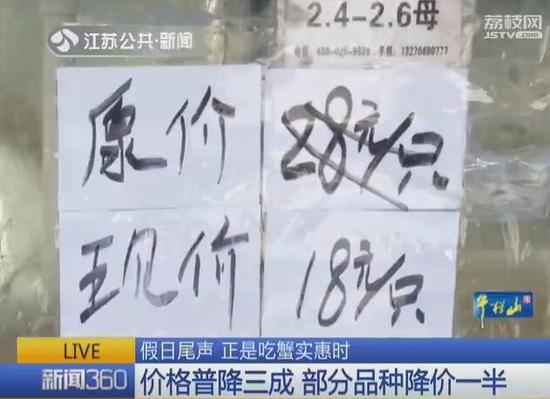 江苏公共·新闻
荔枝网
JSTV.com
2.4-2.6母
原价 28元/只
现价 18元/只
牛栏山
LIVE 假日尾声 正是吃蟹实惠时
新闻360 价格普降三成 部分品种降价一半